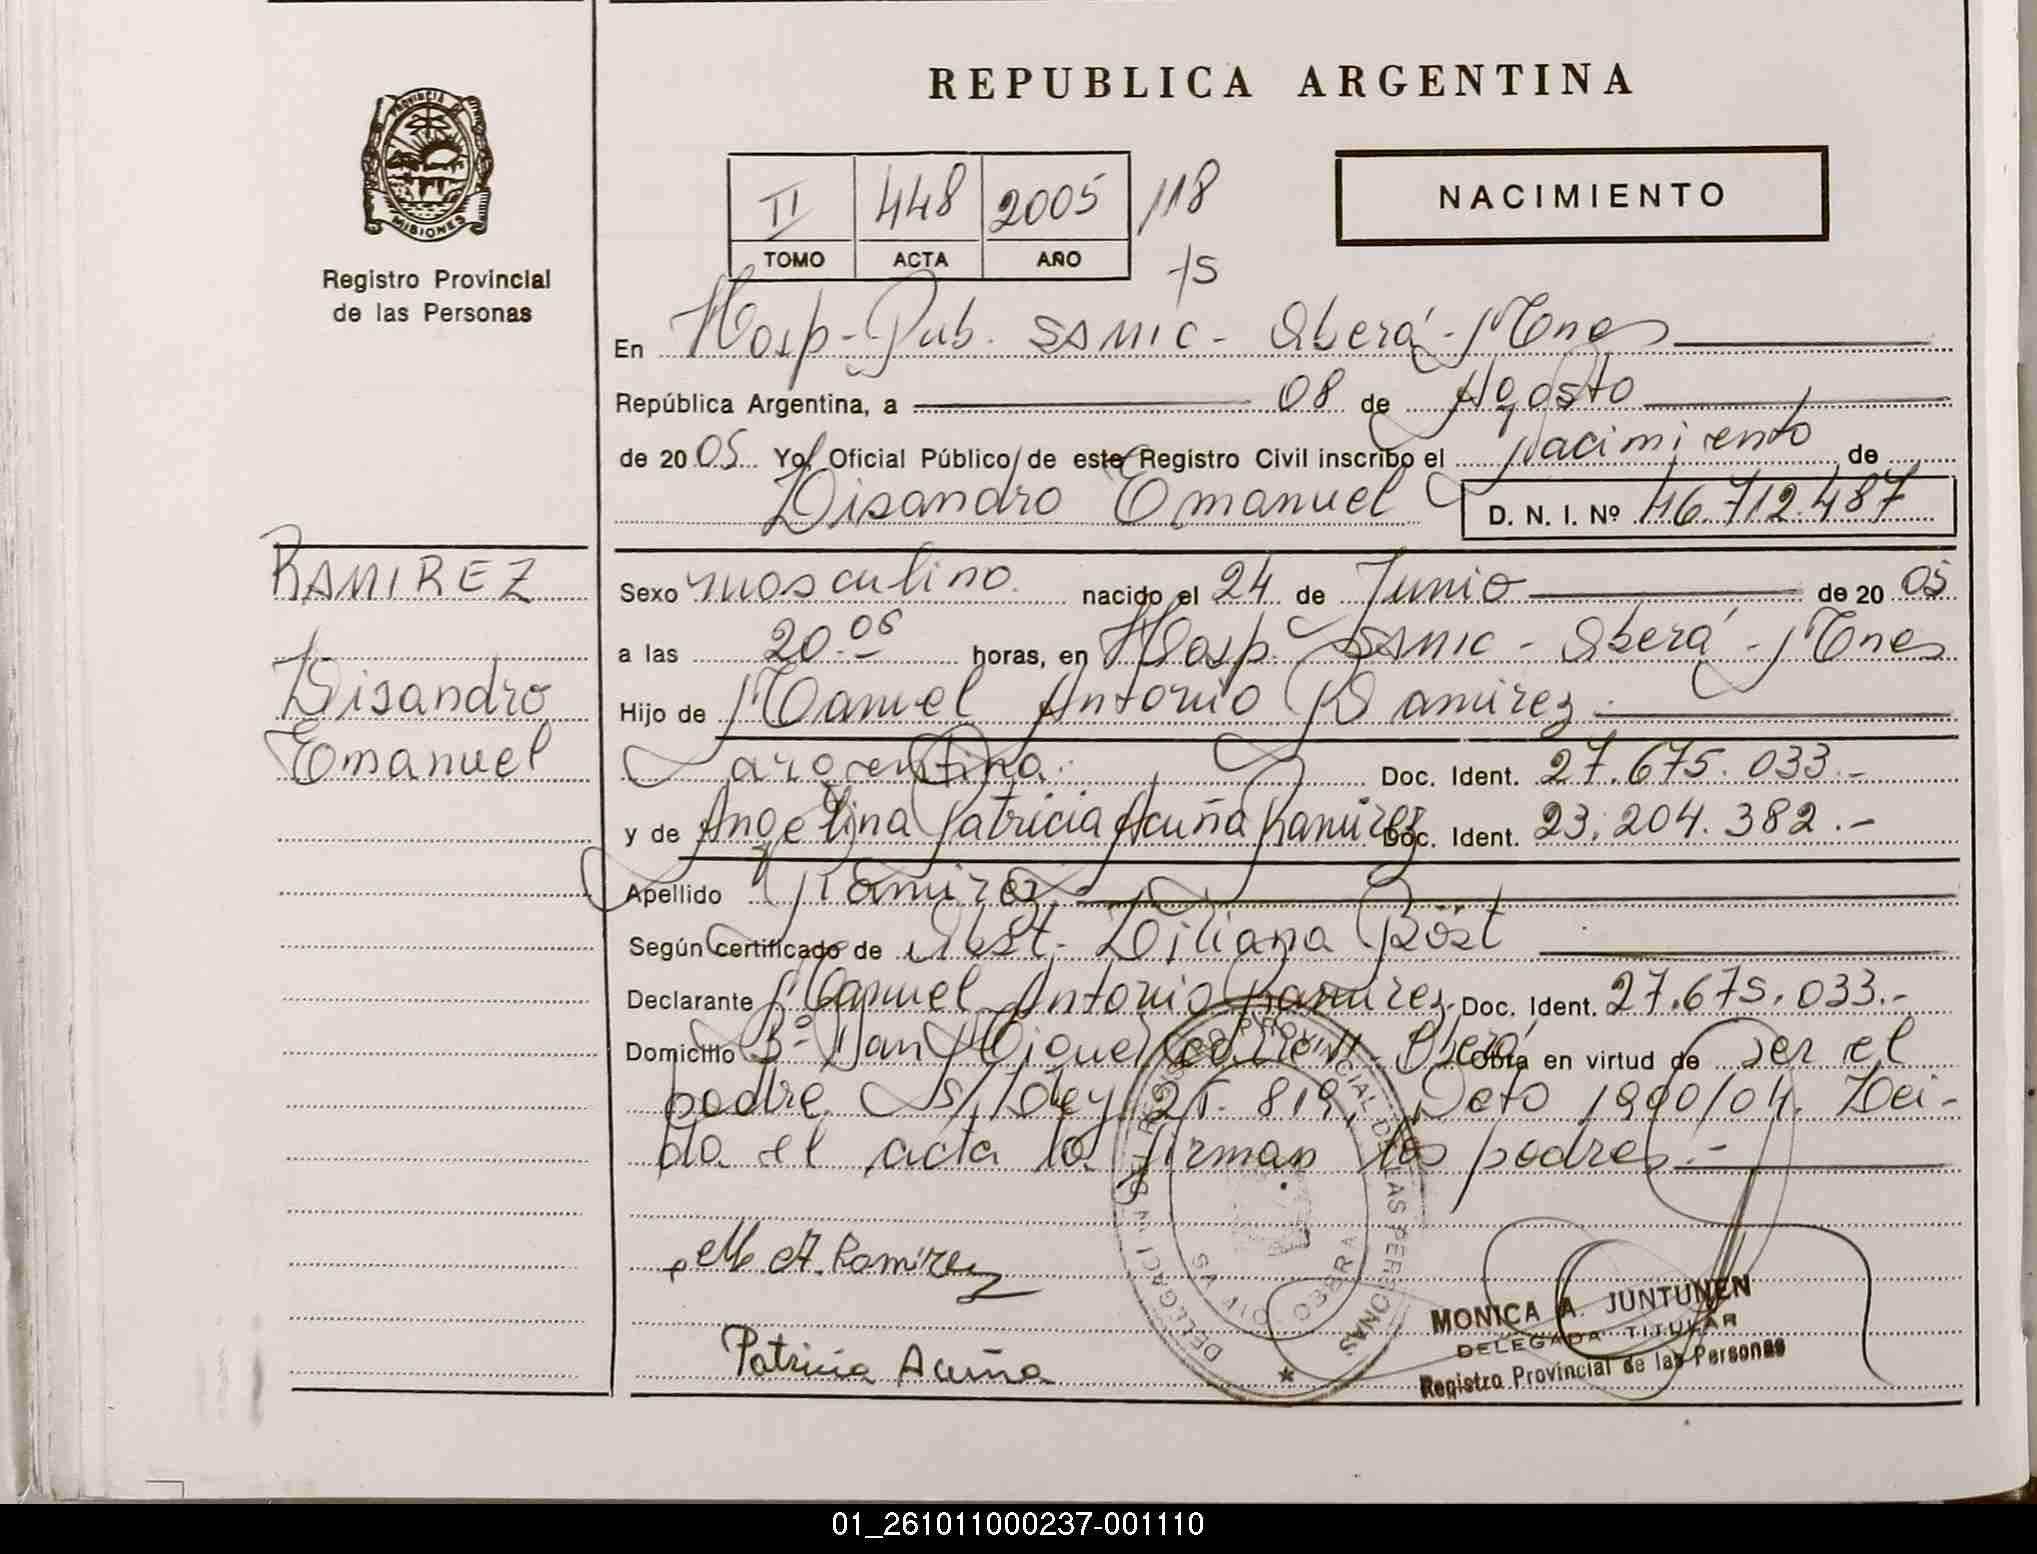 REPUBLICA ARGENTINA
PROVINCIA DE
MISIONES
Registro Provincial
de las Personas
II 448 2005 /18
TOMO ACTA AÑO
75
NACIMIENTO
En Hosp-Pub. SAMIC - Oberá - Mnes
República Argentina, a 08 de Agosto
de 2005 Yo, Oficial Público de este Registro Civil inscribo el Nacimiento de
Lisandro Emanuel D. N. I. Nº 46.712.487
RAMIREZ
Lisandro
Emanuel
Sexo masculino. nacido el 24 de Junio de 2005
a las 20.05 horas, en Hosp. SAMIC - Oberá - Mnes
Hijo de Manuel Antonio Ramirez
argentina. Doc. Ident. 27.675.033.-
y de Angelina Patricia Acuña Ramirez Doc. Ident. 23.204.382.-
Apellido Ramirez
Según certificado de Obst. Liliana Röst
Declarante Manuel Antonio Ramirez. Doc. Ident. 27.675.033.-
Domicilio Bº San Miguel Oberá Obra en virtud de ser el
padre. S/Ley 25.819. Dcto 1990/04. Lei-
da el acta la firman los padres.-
M. A. Ramirez
Patricia Acuña
REGISTRO PROVINCIAL DE LAS PERSONAS
OBERA
MONICA A. JUNTUNEN
DELEGADA TITULAR
Registro Provincial de las Personas
01_261011000237-001110